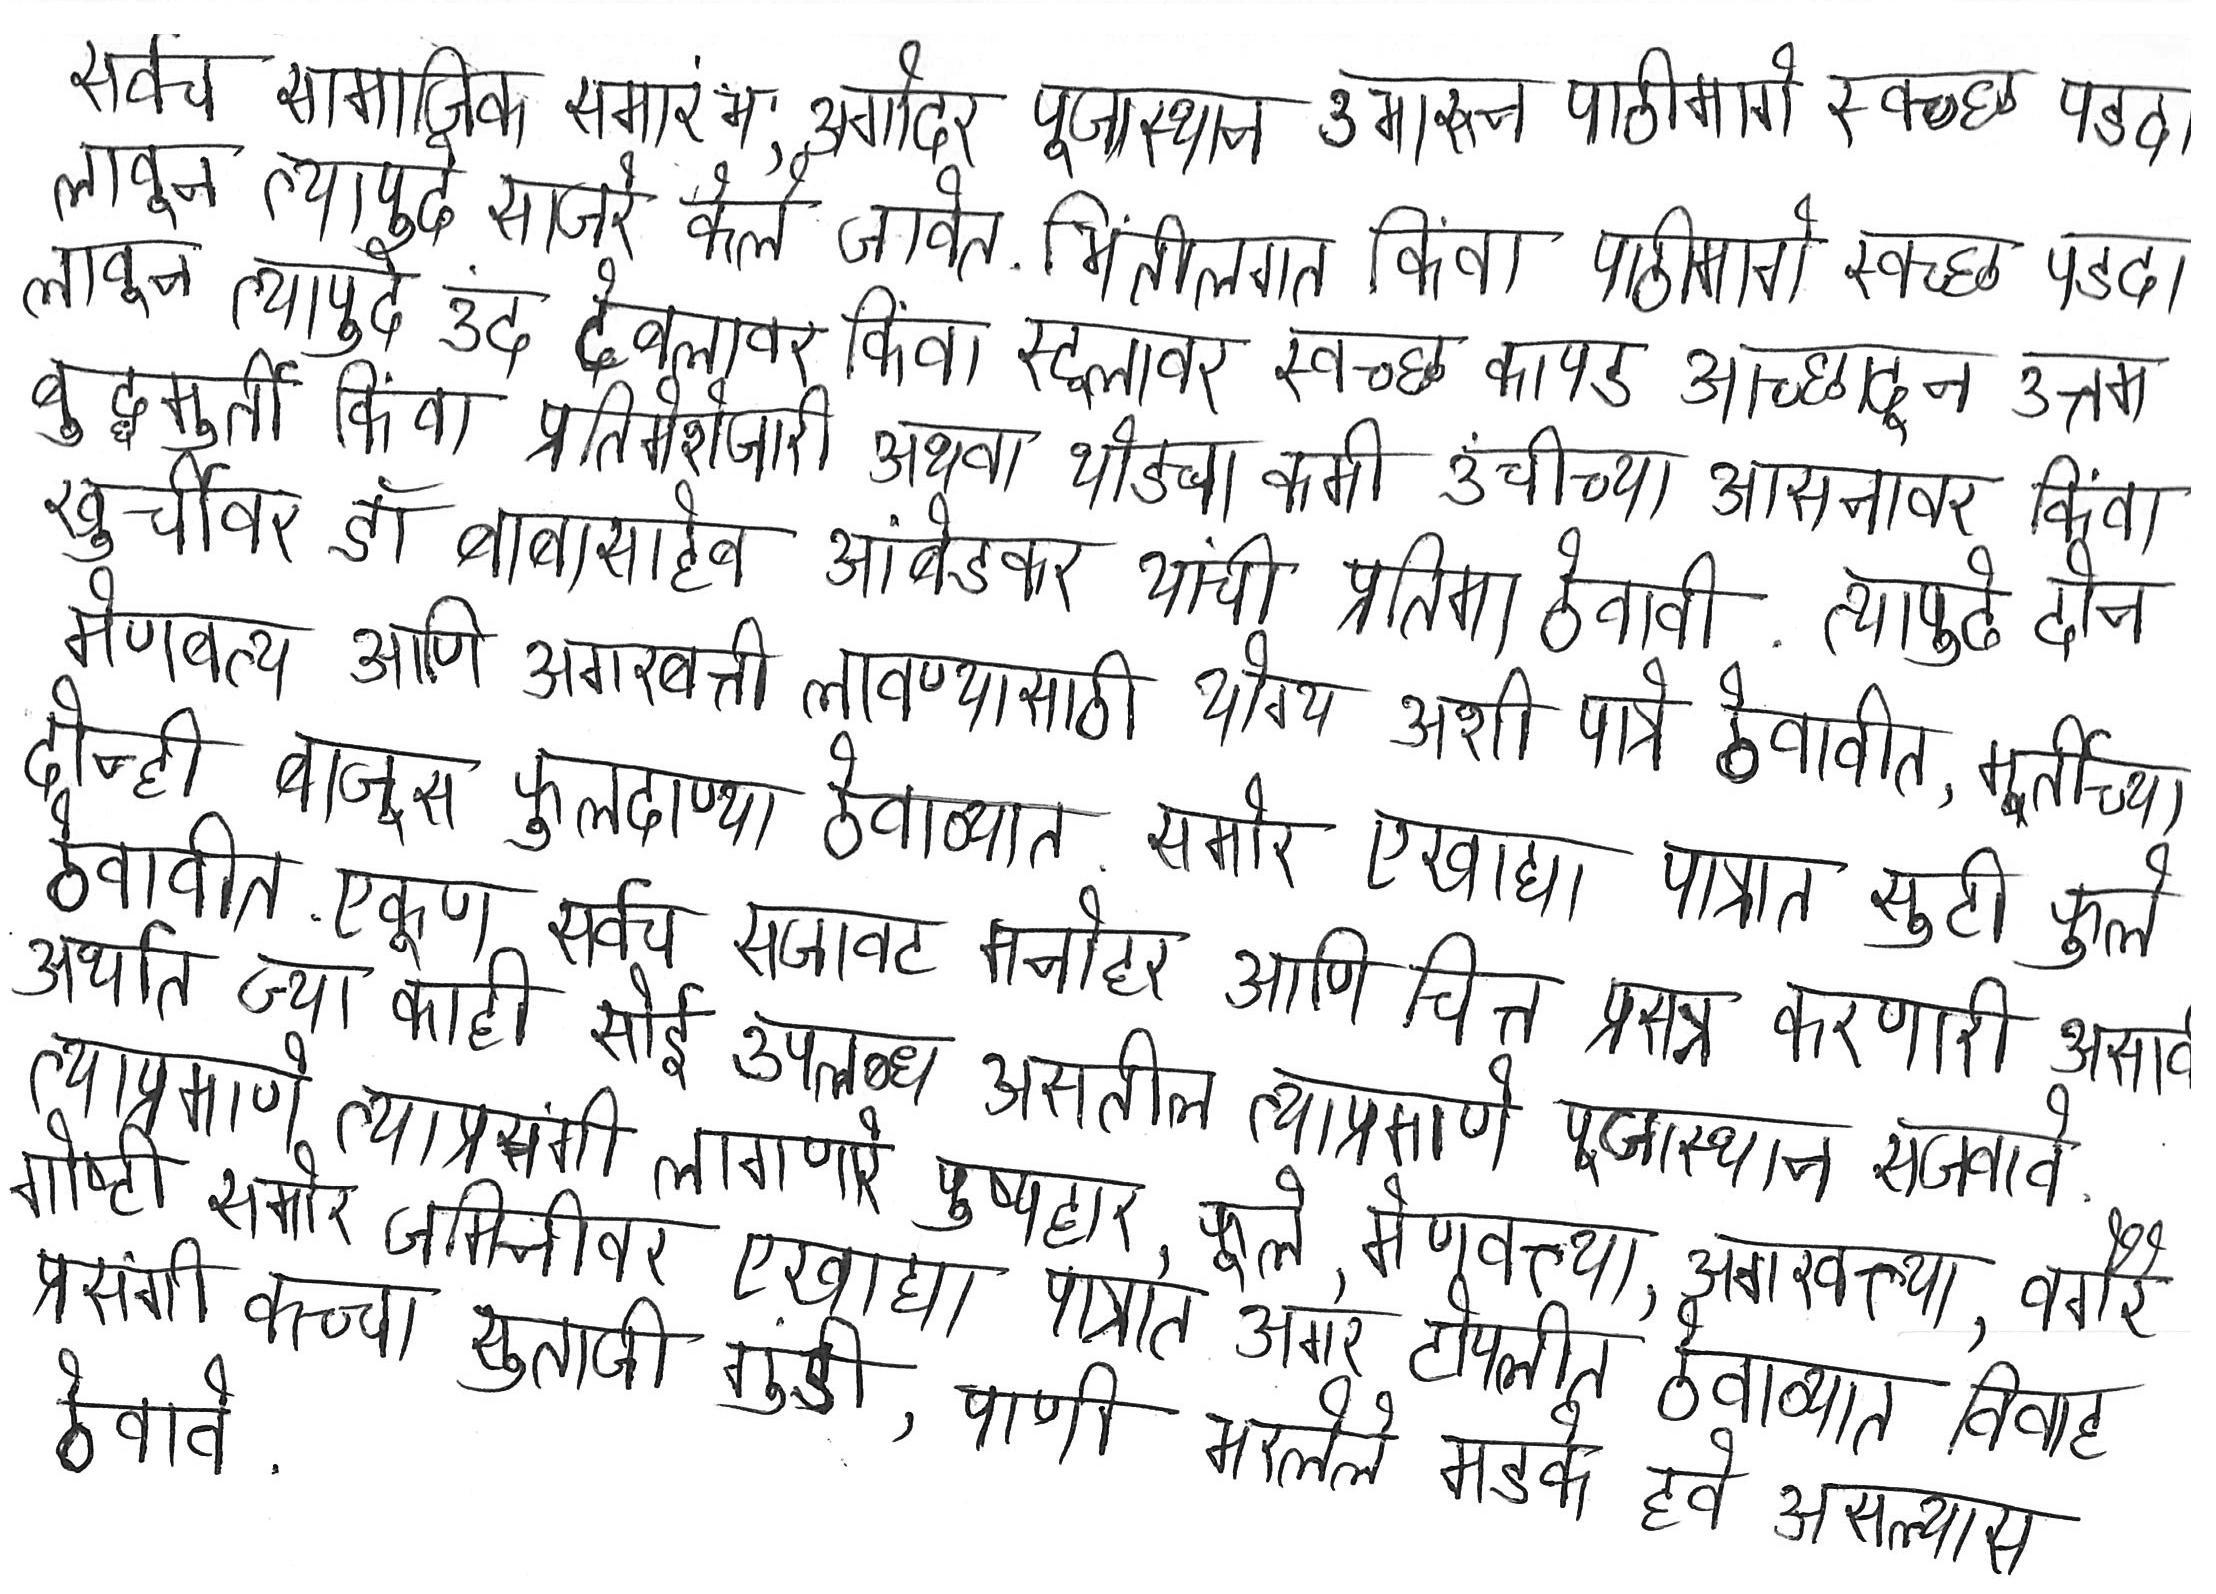 सर्वच सामाजिक समारंभ, अगोदर पूजास्थान उभारून पाठीमागे स्वच्छ पडदा
लावून त्यापुढे साजरे केले जावेत. भिंतीलगत किंवा पाठीमागे स्वच्छ पडदा
लावून त्यापुढे उंद टेबलावर किंवा स्टूलावर स्वच्छ कापड आच्छादून उत्तम
बुद्धमुर्ती किंवा प्रतिमेशेजारी अथवा थोड्या कमी उंचीच्या आसनावर किंवा
खुर्चीवर डॉ बाबासाहेब आंबेडकर यांची प्रतिमा ठेवावी. त्यापुढे दोन
मेणबत्य आणि अगरबत्ती लावण्यासाठी योग्य अशी पात्रे ठेवावीत, मूर्तीच्या
दोन्ही बाजूस फुलदाण्या ठेवाव्यात. समोर एखाद्या पात्रात सुटी फुले
ठेवावीत. एकूण सर्वच सजावट मनोहर आणि चित्त प्रसन्न करणारी असावे
अर्थात ज्या काही सोई उपलब्ध असतील त्याप्रमाणे पूजास्थान सजवावे.
त्याप्रमाणे त्याप्रसंगी लागणारे पुष्पहार, फूले, मेणवत्त्या, अगरवत्त्या, वगैरे
गोष्टी समोर जमिनीवर एखाद्या पात्रात अगर टोपलीत ठेवाव्यात विवाह
प्रसंगी कच्च्या सुताजी गुंडी, पाणी भरलेले मडके हवे असल्यास
ठेवावे.